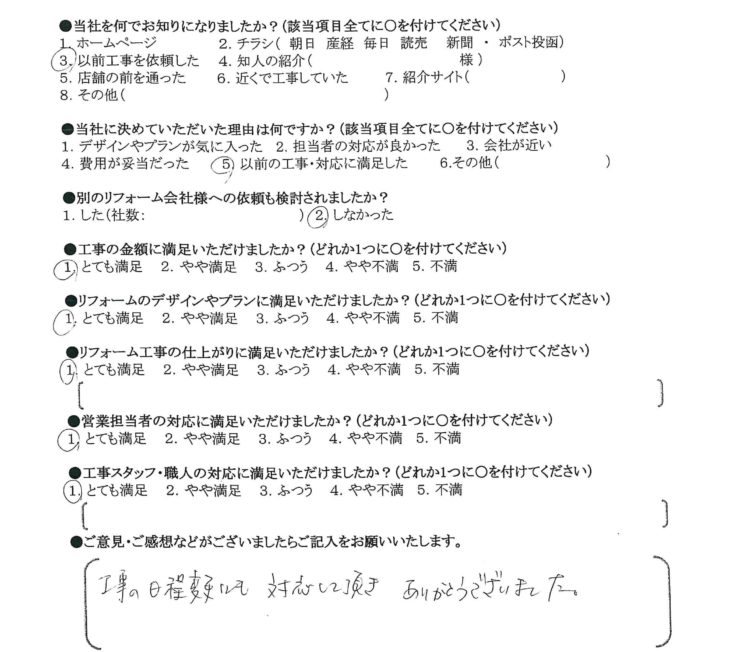 ●当社を何でお知りになりましたか？(該当項目全てに○を付けてください)
1. ホームページ 2. チラシ( 朝日 産経 毎日 読売 新聞 ・ ポスト投函)
3. 以前工事を依頼した 4. 知人の紹介( 様 )
5. 店舗の前を通った 6. 近くで工事していた 7. 紹介サイト( )
8. その他( )
●当社に決めていただいた理由は何ですか？(該当項目全てに○を付けてください)
1. デザインやプランが気に入った 2. 担当者の対応が良かった 3. 会社が近い
4. 費用が妥当だった 5. 以前の工事・対応に満足した 6.その他( )
●別のリフォーム会社様への依頼も検討されましたか？
1. した(社数: ) 2. しなかった
●工事の金額に満足いただけましたか？(どれか1つに○を付けてください)
1. とても満足 2. やや満足 3. ふつう 4. やや不満 5. 不満
●リフォームのデザインやプランに満足いただけましたか？(どれか1つに○を付けてください)
1. とても満足 2. やや満足 3. ふつう 4. やや不満 5. 不満
●リフォーム工事の仕上がりに満足いただけましたか？(どれか1つに○を付けてください)
1. とても満足 2. やや満足 3. ふつう 4. やや不満 5. 不満
●営業担当者の対応に満足いただけましたか？(どれか1つに○を付けてください)
1. とても満足 2. やや満足 3. ふつう 4. やや不満 5. 不満
●工事スタッフ・職人の対応に満足いただけましたか？(どれか1つに○を付けてください)
1. とても満足 2. やや満足 3. ふつう 4. やや不満 5. 不満
●ご意見・ご感想などがございましたらご記入をお願いいたします。
工事の日程変更にも 対応して頂き ありがとうございました。